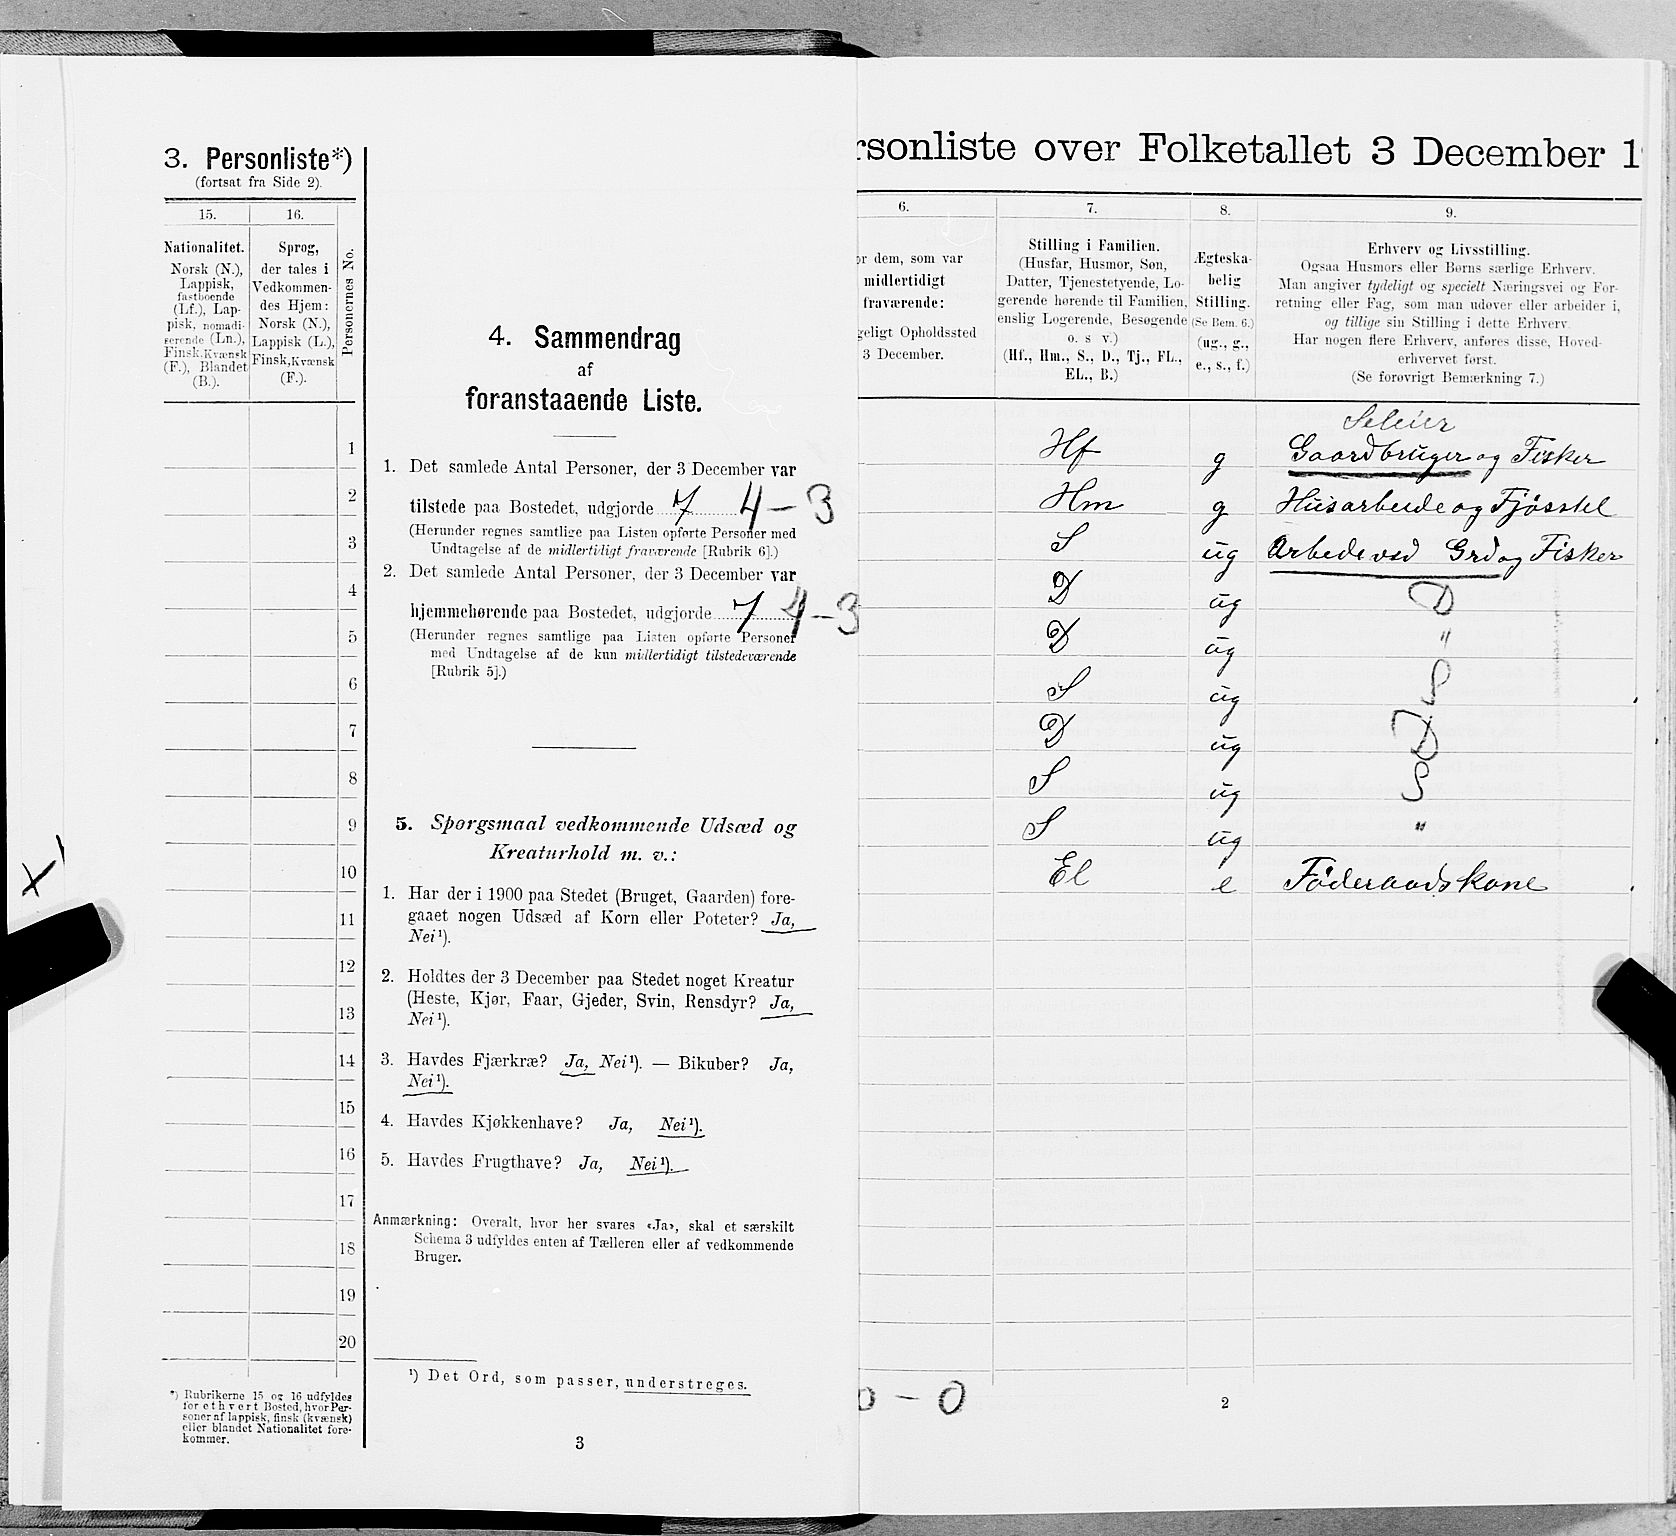 3. Personliste*)
(fortsat fra Side 2).
15.
16.
Personernes No.
Nationalitet.
Norsk (N.),
Lappisk,
fastboende
(Lf.), Lap-
pisk, nomadi-
serende (Ln.),
Finsk, Kvænsk
(F.), Blandet
(B.).
Sprog,
der tales i
Vedkommen-
des Hjem:
Norsk (N.),
Lappisk (L.),
Finsk, Kvænsk
(F.).
1
2
3
4
5
6
7
8
9
10
11
12
13
14
15
16
17
18
19
20
*) Rubrikerne 15 og 16 udfyldes
for ethvert Bosted, hvor Per-
soner af lappisk, finsk (kvænsk)
eller blandet Nationalitet fore-
kommer.
4. Sammendrag
af
foranstaaende Liste.
1. Det samlede Antal Personer, der 3 December var
tilstede paa Bostedet, udgjorde 7 4-3
(Herunder regnes samtlige paa Listen opførte Personer med
Undtagelse af de midlertidigt fraværende [Rubrik 6].)
2. Det samlede Antal Personer, der 3 December var
hjemmehørende paa Bostedet, udgjorde 7 4-3
(Herunder regnes samtlige paa Listen opførte Personer
med Undtagelse af de kun midlertidigt tilstedeværende
[Rubrik 5].)
5. Spørgsmaal vedkommende Udsæd og
Kreaturhold m. v.:
1. Har der i 1900 paa Stedet (Bruget, Gaarden) fore-
gaaet nogen Udsæd af Korn eller Poteter? Ja,
Nei¹).
2. Holdtes der 3 December paa Stedet noget Kreatur
(Heste, Kjør, Faar, Gjeder, Svin, Rensdyr? Ja,
Nei¹).
3. Havdes Fjærkræ? Ja, Nei¹). — Bikuber? Ja,
Nei¹).
4. Havdes Kjøkkenhave? Ja, Nei¹).
5. Havdes Frugthave? Ja, Nei¹).
Anmærkning: Overalt, hvor her svares «Ja», skal et særskilt
Schema 3 udfyldes enten af Tælleren eller af vedkommende
Bruger.
¹) Det Ord, som passer, understreges.
3
rsonliste over Folketallet 3 December 1
6.
7.
8.
9.
or dem, som var
midlertidigt
fraværende:
geligt Opholdssted
3 December.
Stilling i Familien.
(Husfar, Husmor, Søn,
Datter, Tjenestetyende, Lo-
gerende hørende til Familien,
enslig Logerende, Besøgende
o. s v.)
(Hf., Hm., S., D., Tj., FL.,
EL., B.)
Ægteska-
belig
Stilling.
(Se Bem. 6.)
(ug., g.,
e., s., f.)
Erhverv og Livsstilling.
Ogsaa Husmors eller Børns særlige Erhverv.
Man angiver tydeligt og specielt Næringsvei og For-
retning eller Fag, som man udøver eller arbeider i,
og tillige sin Stilling i dette Erhverv.
Har nogen flere Erhverv, anføres disse, Hoved-
erhvervet først.
(Se forøvrigt Bemærkning 7.)
Seleier
Hf g Gaardbruger og Fisker
Hm g Husarbeide og Fjøsstel
S ug Arbeide ved Grd og Fisker
D ug D
D ug "
S ug S
D ug D
S ug S
S ug "
El e Føderaadskone
0 - 0
2